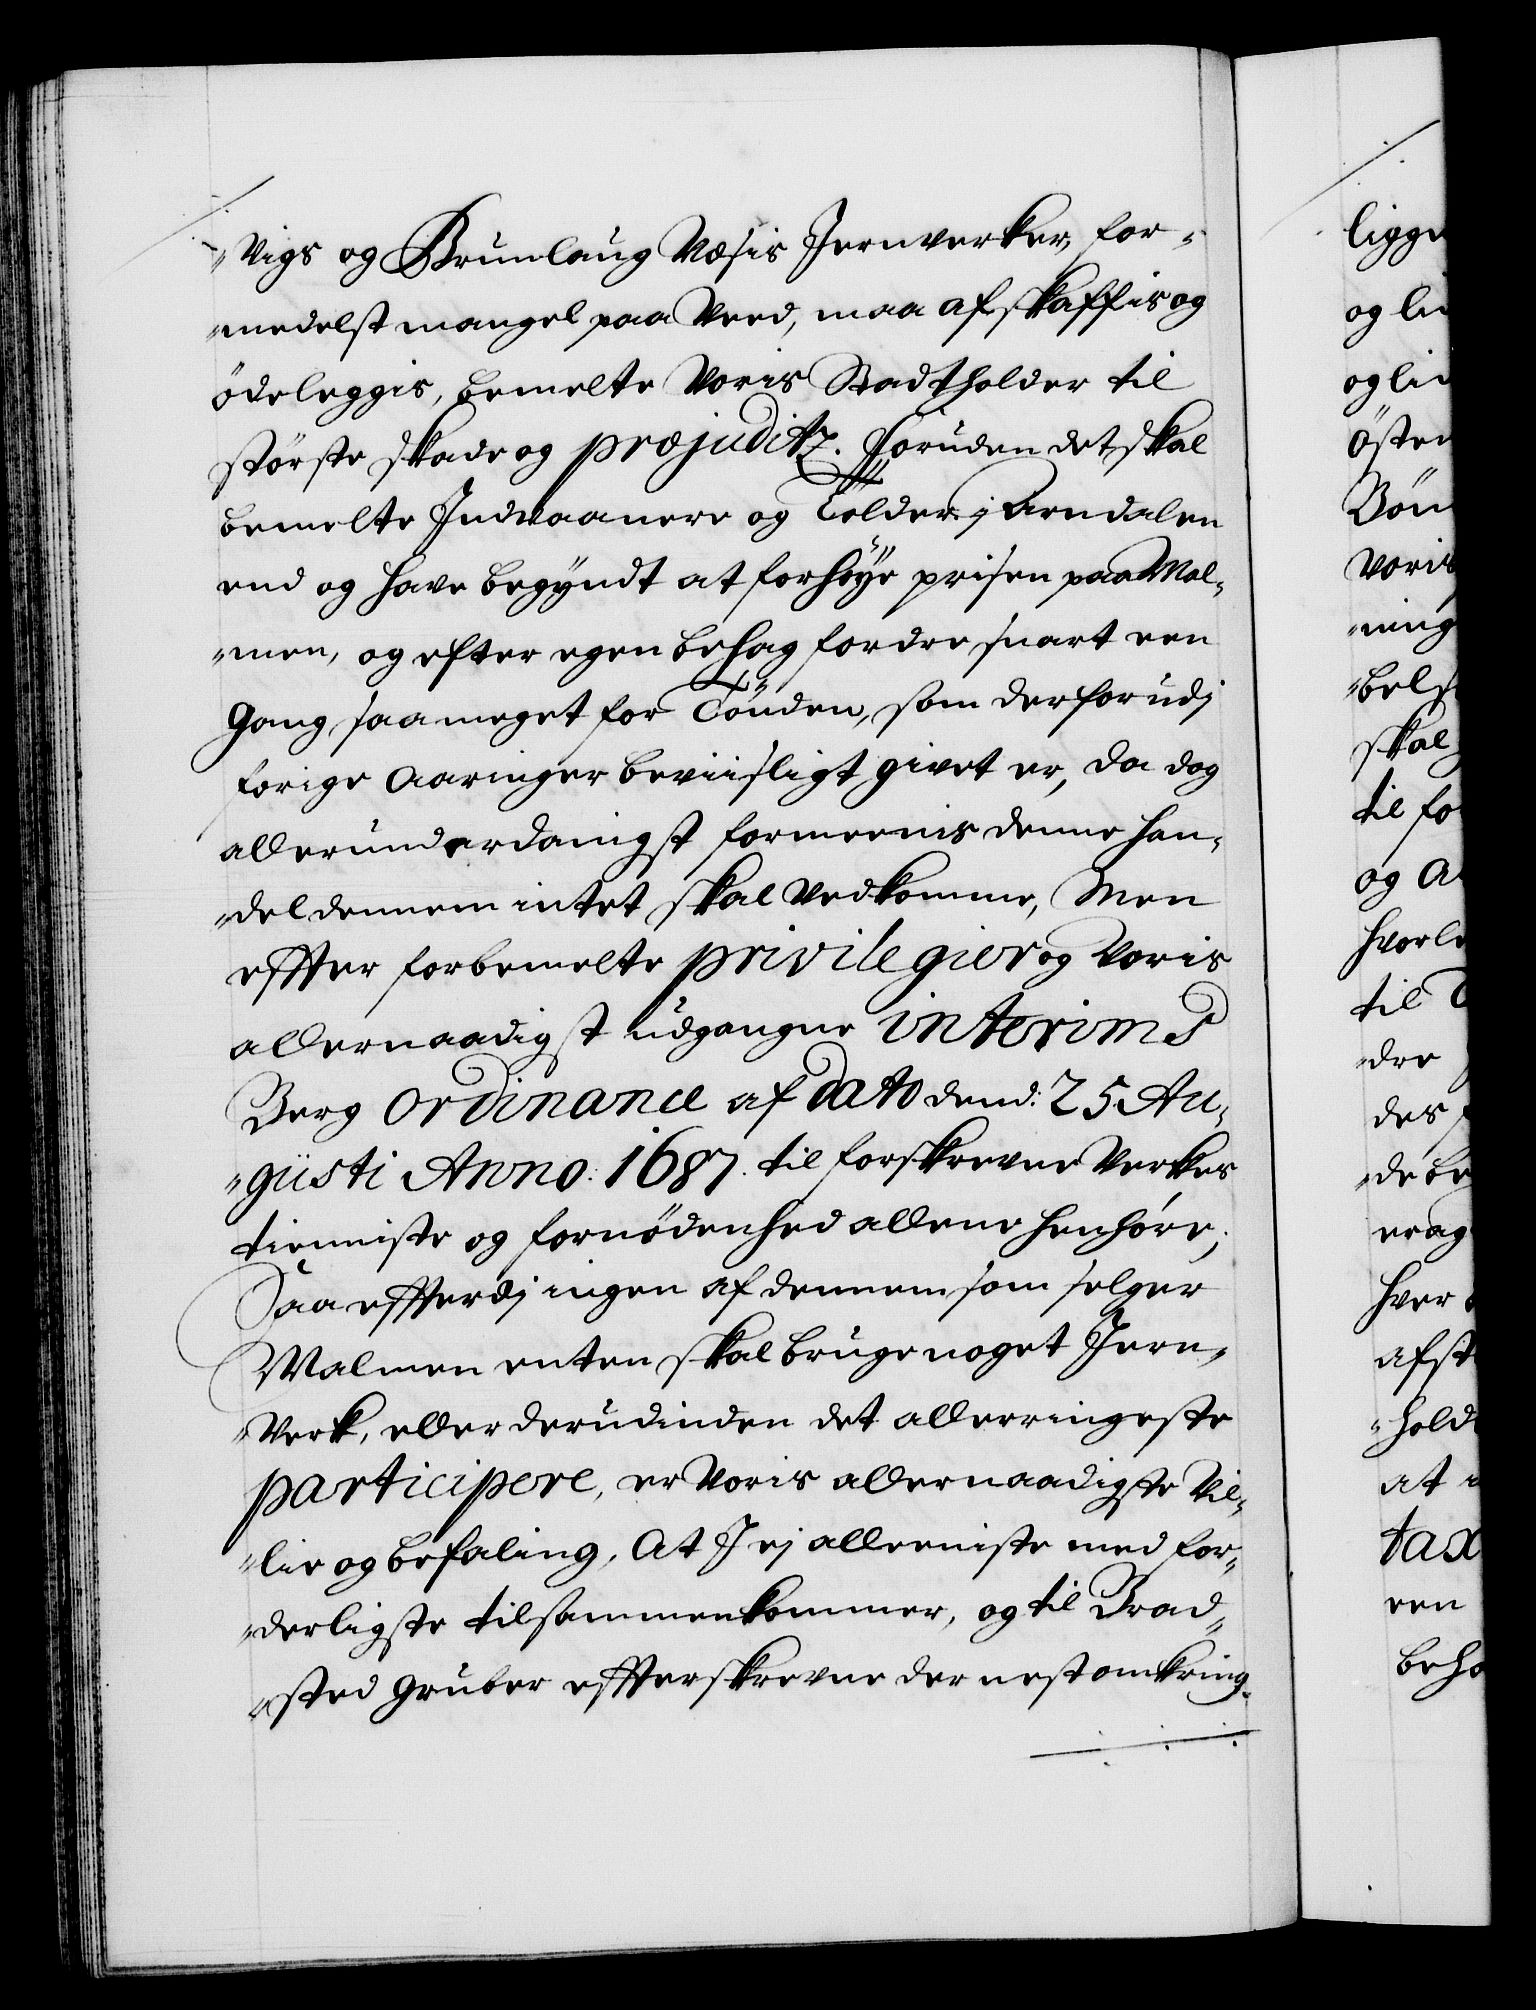 "Vigs og Brunlaug Næsis Jernverker, for-
"medelst mangel paa Veed, maa afskaffis og
ödeleggis, bemelte Voris Stadtholder til
störste skade og præjuditz. Foruden det, skal
bemelte Indvaanere og Tolder i Arndalen
end og have begyndt at forhöye prisen paa Mal-
"men, og efter egen behag fordre snart een
Gang saa meget for Tönden, som derfor udj
forige Aaringer beviisligt givet er, da dog
allerunderdanigst formeenis denne han-
"del dennem intet skal vedkomme, Men
effter forbemelte privilegier og Voris
allernaadigst udgangne interims
Berg Ordinance af dato dend: 25. Au-
"gusti Anno: 1687. til forskrevne Verkes
tienniste og fornödenhed allene henhöre,
Saa effterdj ingen af dennem som selger
Malmen enten skal bruge noget Jern-
"Verk, eller derudinden det allerringeste
participere, er Voris allernaadigste Vil-
"lie og befaling, At I ej alleeniste med for-
"derligste tilsammenkommer, og til Brad-
"sted Gruber effterskrevne der nest omkring
ligge
og li
og li
Östen
Bön
Voris
"ning
"bels
skal
til fo
og A
hvorl
til
"dre
des
"de be
erag
hver
afst
"hold
at
tax
een
beho